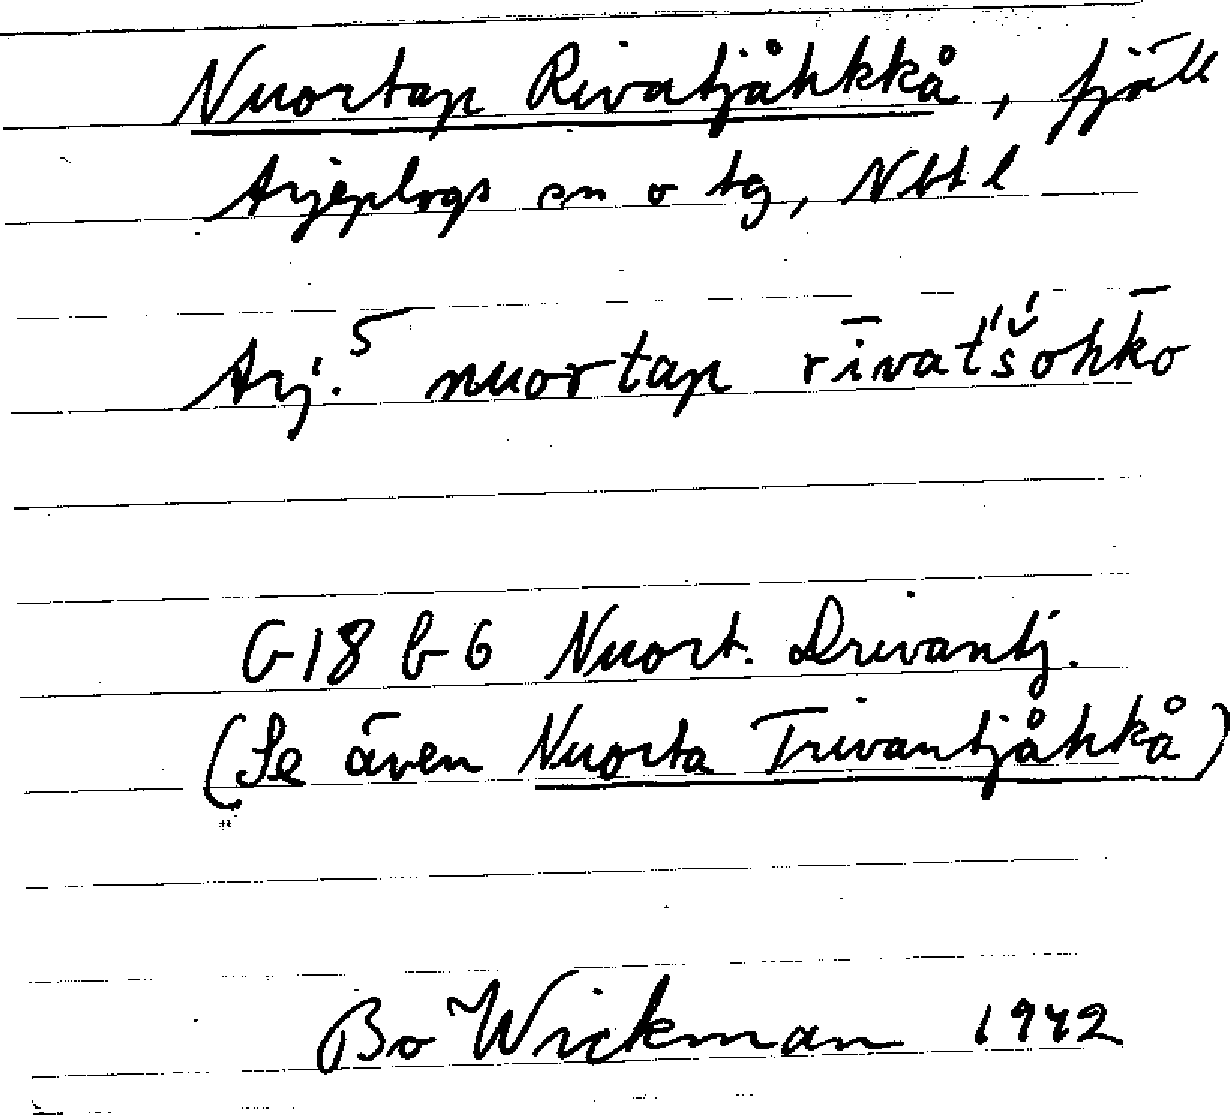 Nuortap Rivatjåhkkå, fjäll
Arjeplogs sn o tg, Nbtl
Arj.5 nuortap rīvat́š́ohk̄o
G18 b 6 Nuort. Drivantj.
(Se även Nuorta Trivantjåhkå)
Bo Wickman 1942